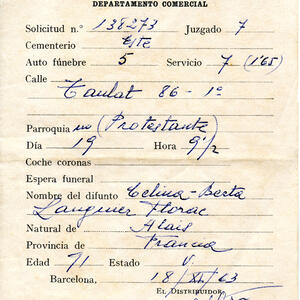 DEPARTAMENTO COMERCIAL
Solicitud n.° 138273 Juzgado 7
Cementerio Este
Auto fúnebre 5 Servicio 7 (1'65)
Calle
Taulat 86-1º
Parroquia no (Protestante)
Día 19 Hora 9 1/2
Coche coronas
Espera funeral
Nombre del difunto Celina-Berta
Florac
Natural de Alais
Provincia de Francia
Edad 71 Estado V.
Barcelona, 18/XII/63
EL DISTRIBUIDOR